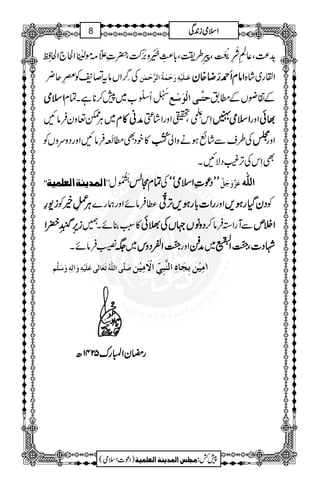 اسلامی زندگی
8
بدعت، عالِمِ شَرِیْعَت، پیرِ طریقت، باعثِ خَیْر و بَرَکت، حضرتِ علّامہ مولانا الحاج الحافِظ
القاری شاہ امام احمد رَضا خان عَلَیْہِ رَحْمَۃُ الرَّحْمٰن کی گِراں مایہ تصانیف کو عصرِ حاضر
کے تقاضوں کے مطابق حَتَّی الْوَسْع سَہْل اُسْلُوب میں پیش کرنا ہے۔ تمام اسلامی
بھائی اور اسلامی بہنیں اس عِلمی، تحقیقی اور اشاعتی مدنی کام میں ہر ممکن تعاون فرمائیں
اور مجلس کی طرف سے شائع ہونے والی کُتُب کا خود بھی مطالَعہ فرمائیں اور دوسروں کو
بھی اس کی ترغیب دلائیں۔
اللہ عَزَّوَجَلَّ ”دعوتِ اسلامی“ کی تمام مجالس بَشُمُول ”المدینۃ العلمیۃ“
کو دن گیارہویں اور رات بارہویں ترقّی عطا فرمائے اور ہمارے ہر عملِ خیر کو زیورِ
اخلاص سے آراستہ فرما کر دونوں جہاں کی بھلائی کا سبب بنائے۔ ہمیں زیرِ گنبدِ خضرا
شہادت، جنّت البقیع میں مدفن اور جنّت الفردوس میں جگہ نصیب فرمائے۔
اٰمِیْن بِجَاہِ النَّبِیِّ الْاَمِیْن صَلَّی اللہُ تَعَالٰی عَلَیْہِ وَاٰلِہٖ وَسَلَّم
رمضان المبارک ۱۴۲۵ھ
پیش کش: مجلس المدینۃ العلمیۃ (دعوتِ اسلامی)